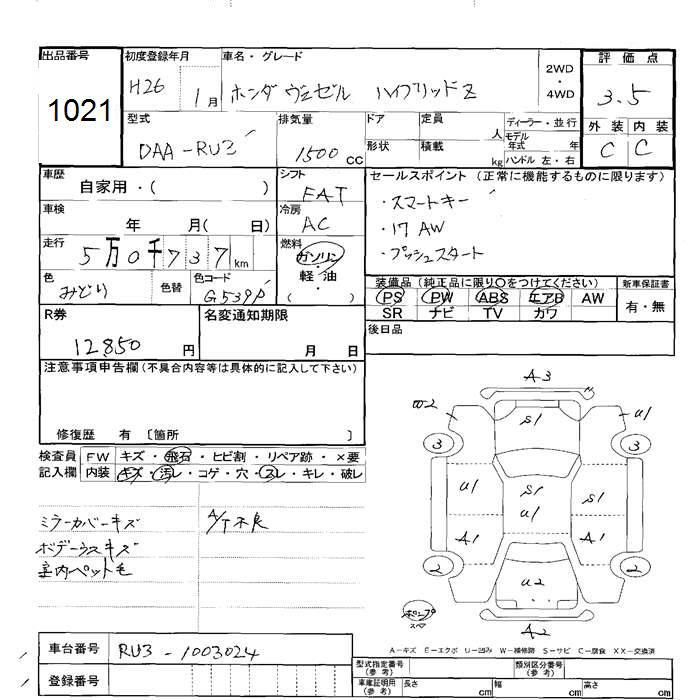 出品番号 初度登録年月 車名・グレード 2WD・4WD 評価点
1021 H26 1月 ホンダ ヴェゼル ハイブリッドZ 3.5
型式 排気量 ドア 定員 人 ディーラー・並行 外装 内装
DAA-RU3 1500cc 形状 積載 kg モデル年式 年 ハンドル 左・右 C C
車歴 シフト セールスポイント (正常に機能するものに限ります)
自家用・( ) FAT ・スマートキー
車検 冷房 ・17AW
年 月( 日) AC ・プッシュスタート
走行 燃料
5万0千737km ガソリン・軽油・( )
色 色替 色コード 装備品(純正品に限り○をつけてください) 新車保証書
みどり G539P PS PW ABS エアB AW 有・無
SR ナビ TV カワ
R券 名変通知期限 後日品
12,850円 月 日
注意事項申告欄(不具合内容等は具体的に記入して下さい)
修復歴 有 〔箇所 〕
検査員 FW キズ・飛石・ヒビ割・リペア跡・×要
記入欄 内装 キズ・汚レ・コゲ・穴・スレ・キレ・破レ
ミラーカバーキズ A/T不良
ボデーウスキズ
室内ペット毛
A3
W2 S1 U1
3 3
U1 S1 S1
U1
A1 A1
2 U2 2
A2
A-キズ E-エクボ U-凹み W-補修跡 S-サビ C-腐食 XX-交換済
車台番号 RU3-1003024 型式指定番号(参考) 類別区分番号(参考)
登録番号 車庫証明用(参考) 長さ cm 幅 cm 高さ cm